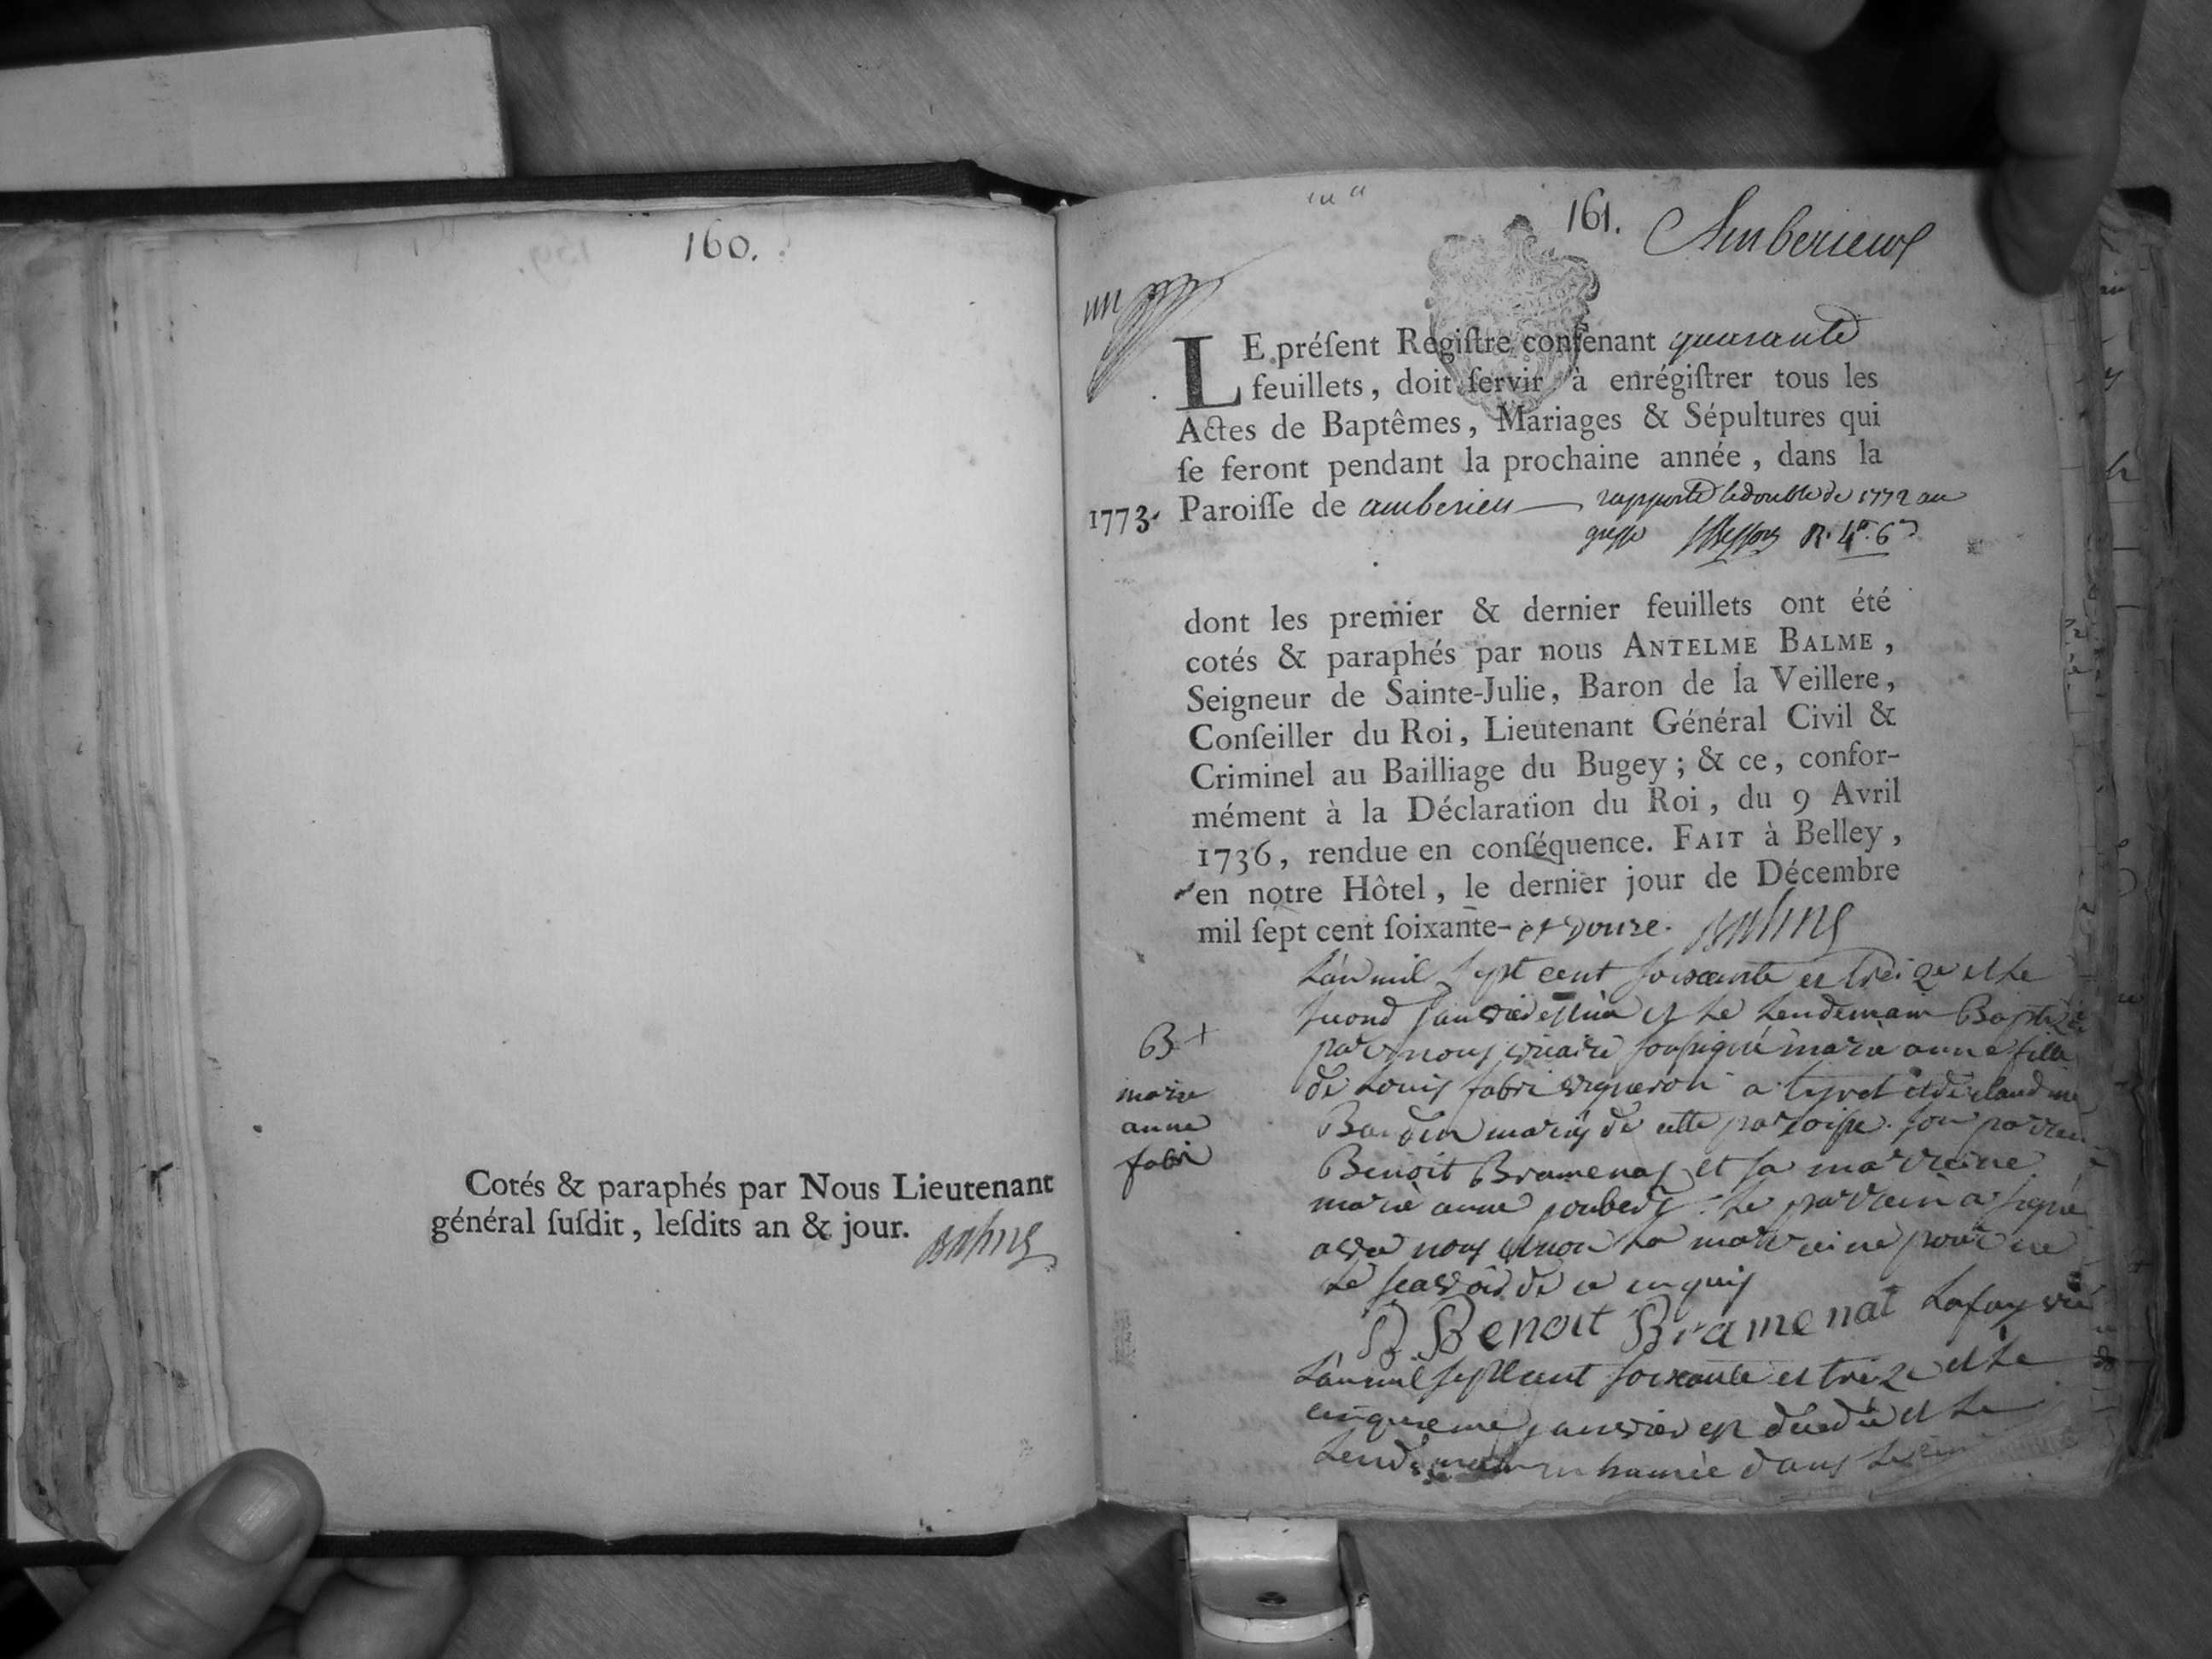 160.
Cotés & paraphés par Nous Lieutenant
général ſuſdit, leſdits an & jour.
161. Amberieux
un
LE préſent Regiſtre contenant quarante
feuillets, doit ſervir à enrégiſtrer tous les
Actes de Baptêmes, Mariages & Sépultures qui
ſe feront pendant la prochaine année, dans la
1773. Paroiſſe de amberieu rapporté le double de 1772 au
greffe R. 4ˢ. 6ᵈ
dont les premier & dernier feuillets ont été
cotés & paraphés par nous ANTELME BALME,
Seigneur de Sainte-Julie, Baron de la Veillere,
Conſeiller du Roi, Lieutenant Général Civil &
Criminel au Bailliage du Bugey; & ce, confor-
mément à la Déclaration du Roi, du 9 Avril
1736, rendue en conſéquence. FAIT à Belley,
en notre Hôtel, le dernier jour de Décembre
mil ſept cent ſoixante- et douze. Balme
L'an mil sept cent soixante et treize et le
second janvier est née et le lendemain Baptizée
par nous vicaire soussigné marie anne fille
de Louis fabri vigneron a et de claudine
mariés de cette paroisse. son parrein
Benoit Bramenas et sa marreine
marie anne joubert. Le parrein a signé
avec nous et non la marreine pour ne
le scavoir de ce enquis
B Benoit Bramenat Lafay vic
B +
marie
anne
fabri
L'an mil sept cent soixante et treize et le
cinquieme janvier est décédée et le
Lendemain inhumée dans le